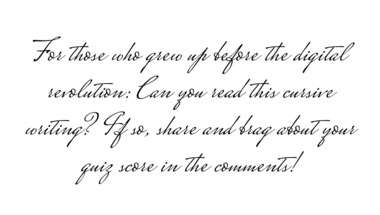 For those who grew up before the digital
revolution: Can you read this cursive
writing? If so, share and brag about your
quiz score in the comments!